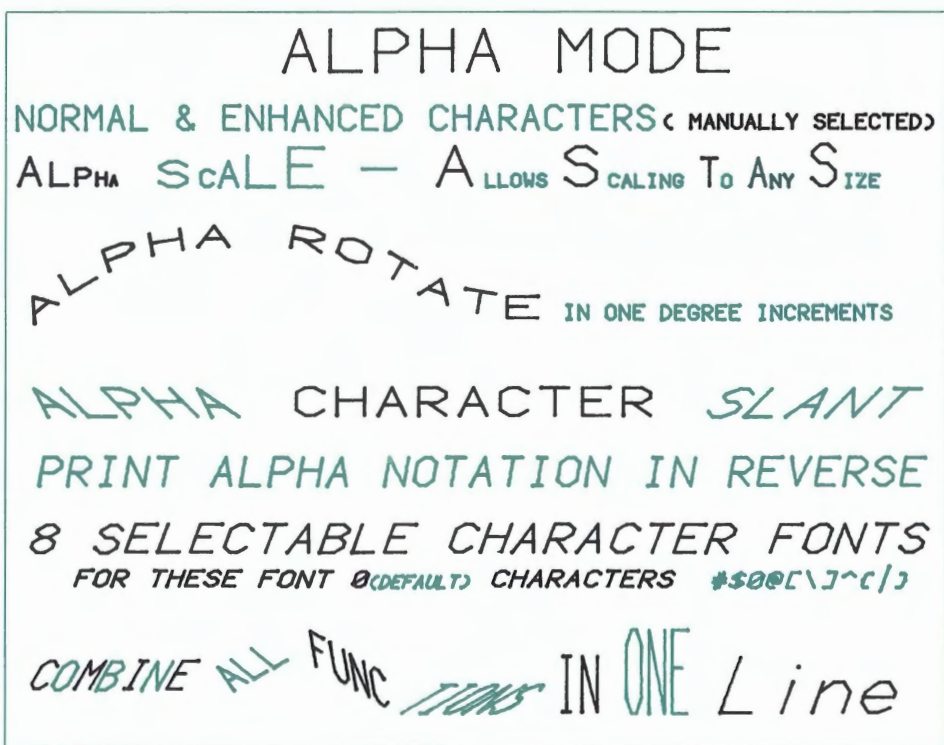 ALPHA MODE
NORMAL & ENHANCED CHARACTERS ( MANUALLY SELECTED)
ALPHA SCALE - ALLOWS SCALING TO ANY SIZE
ALPHA ROTATE IN ONE DEGREE INCREMENTS
ALPHA CHARACTER SLANT
PRINT ALPHA NOTATION IN REVERSE
8 SELECTABLE CHARACTER FONTS
FOR THESE FONT 0(DEFAULT) CHARACTERS #$0@[\]^{|}
COMBINE ALL FUNC TIONS IN ONE Line